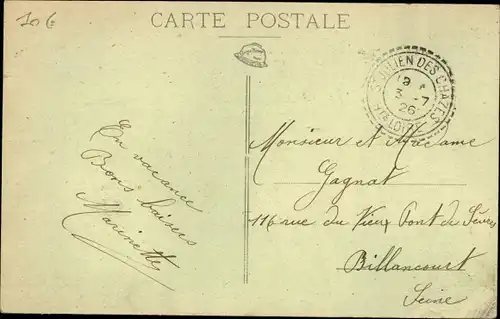 10 €
CARTE POSTALE
ST JULIEN DES CHAZES
19
3 -7
26
HTE LOIRE
En vacance
Bons baisers
Marinette
Monsieur et Madame
Gagnat
116 rue du Vieux Pont de Sèvres
Billancourt
Seine